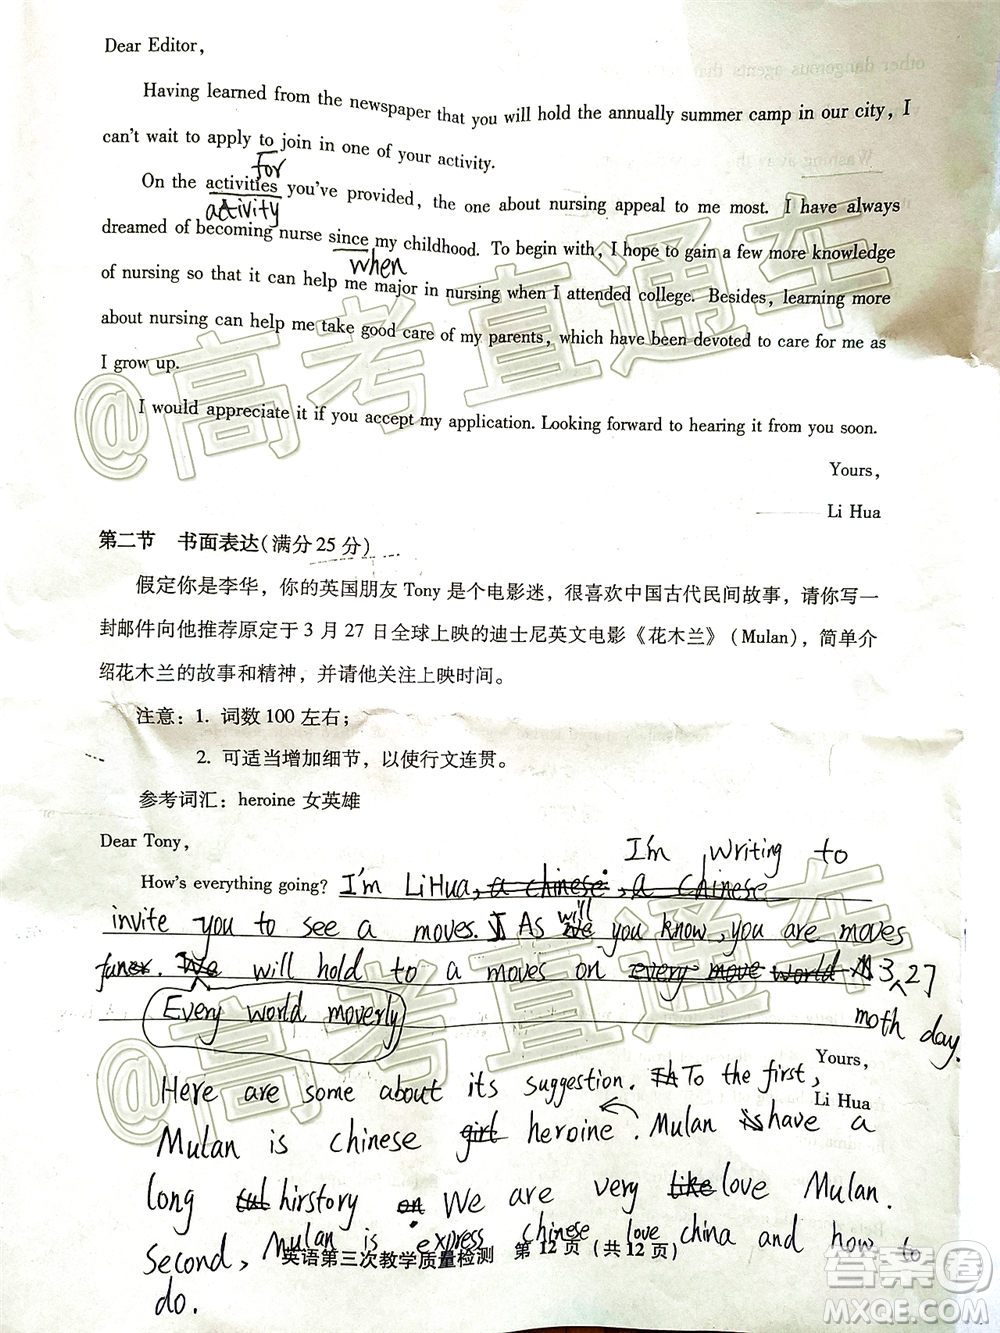 Dear Editor,
Having learned from the newspaper that you will hold the annually summer camp in our city, I
can't wait to apply to join in one of your activity.
for
On the activities you've provided, the one about nursing appeal to me most. I have always
activity
dreamed of becoming nurse since my childhood. To begin with, I hope to gain a few more knowledge
when
of nursing so that it can help me major in nursing when I attended college. Besides, learning more
about nursing can help me take good care of my parents, which have been devoted to care for me as
I grow up.
I would appreciate it if you accept my application. Looking forward to hearing it from you soon.
Yours,
Li Hua
第二节 书面表达(满分25分)
假定你是李华，你的英国朋友 Tony 是个电影迷，很喜欢中国古代民间故事，请你写一
封邮件向他推荐原定于3月27日全球上映的迪士尼英文电影《花木兰》(Mulan)，简单介
绍花木兰的故事和精神，并请他关注上映时间。
注意：1. 词数100左右；
2. 可适当增加细节，以使行文连贯。
参考词汇：heroine 女英雄
Dear Tony,
I'm writing to
How's everything going? I'm LiHua, a chinese, a Chinese
invite you to see a moves. As will you know, you are moves
We will hold to a moves on every move world 3, 27
moth day.
Every world moverly
Yours,
Li Hua
Here are some about its suggestion. To the first,
Mulan is chinese girl heroine. Mulan is have a
long hirstory on We are very like love Mulan.
Second, Mulan is express chinese love china and how to
do.
英语第三次教学质量检测 第12页(共12页)
@高考直通车
@高考直通车
答案圈
MXQE.COM